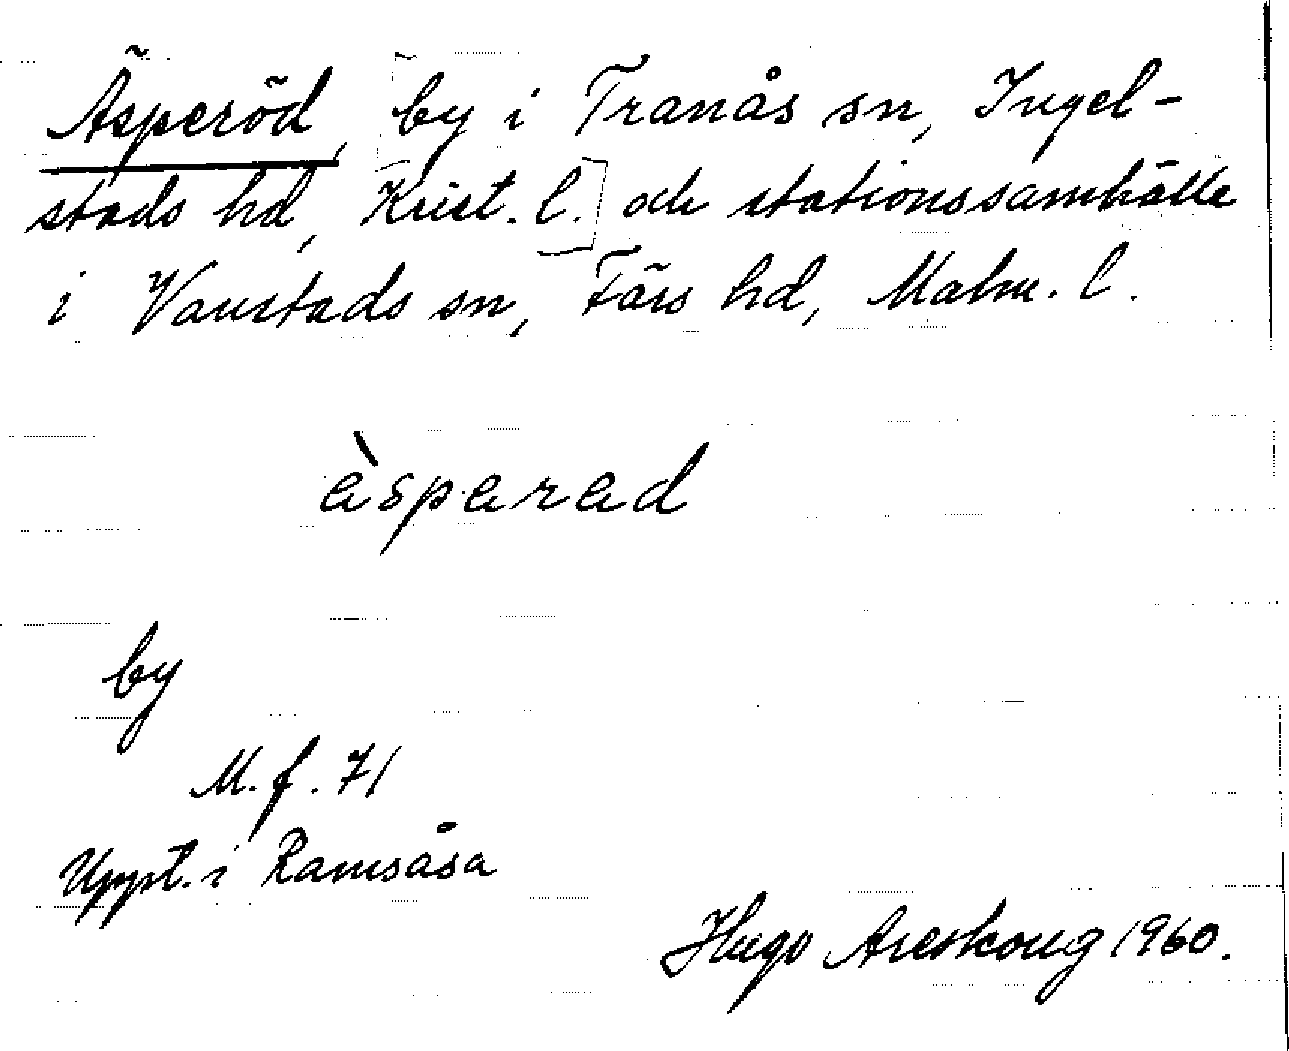 Äsperöd, [by i Tranås sn, Ingel-
stads hd, Krist. l.] och stationssamhälle
i Vanstads sn, Färs hd, Malm. l.
àsparad
by
M. f. 71
Uppt. i Ramsåsa
Hugo Areskoug 1960.